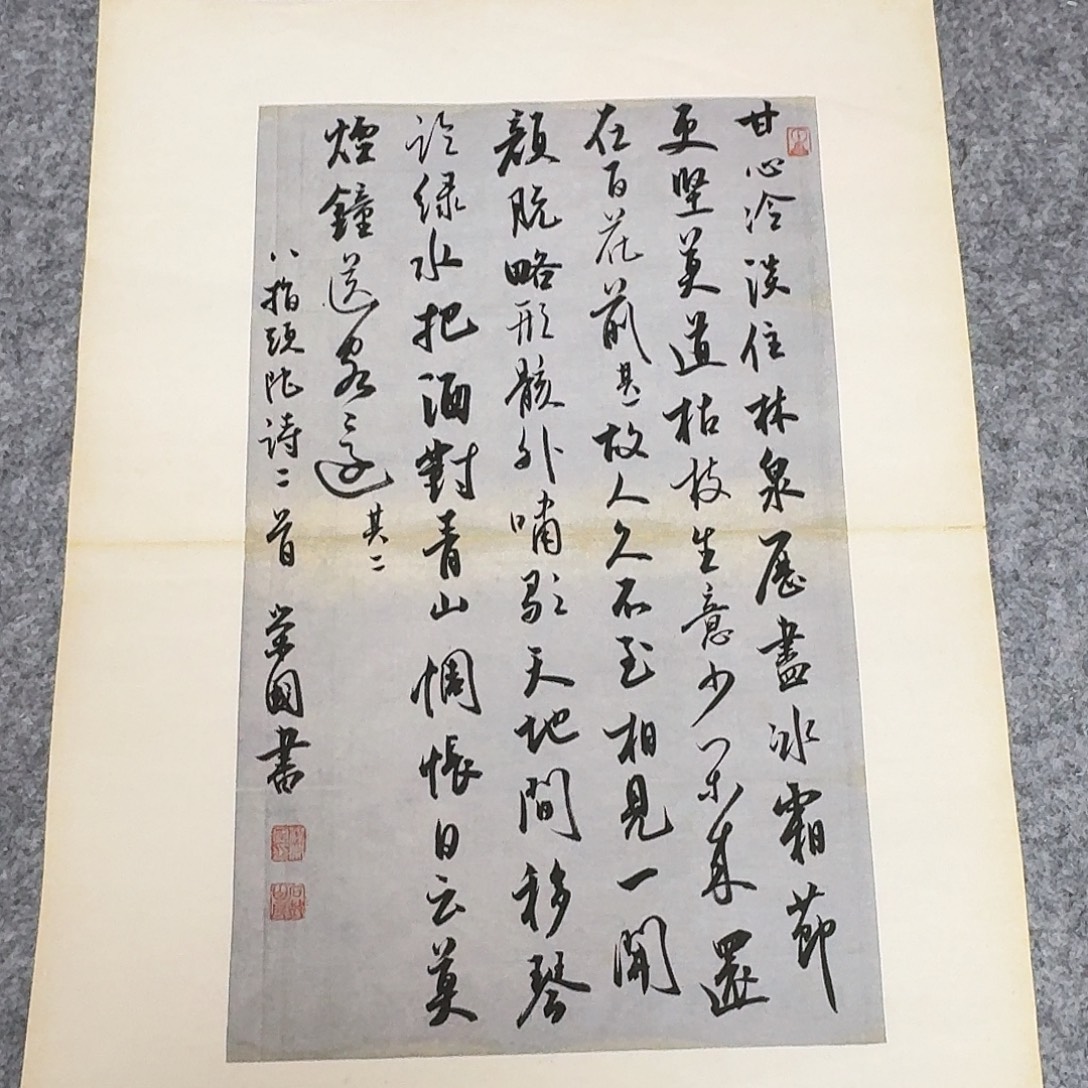 甘心冷淡住林泉歷盡冰霜節
更堅莫道枯枝生意少來還
在百花前其一故人久不至相見一開
顏脫略形骸外嘯歌天地間移琴
臨绿水把酒對青山惆悵日云莫
煙鐘送客還其二
八指頭陀詩二首 榮國書